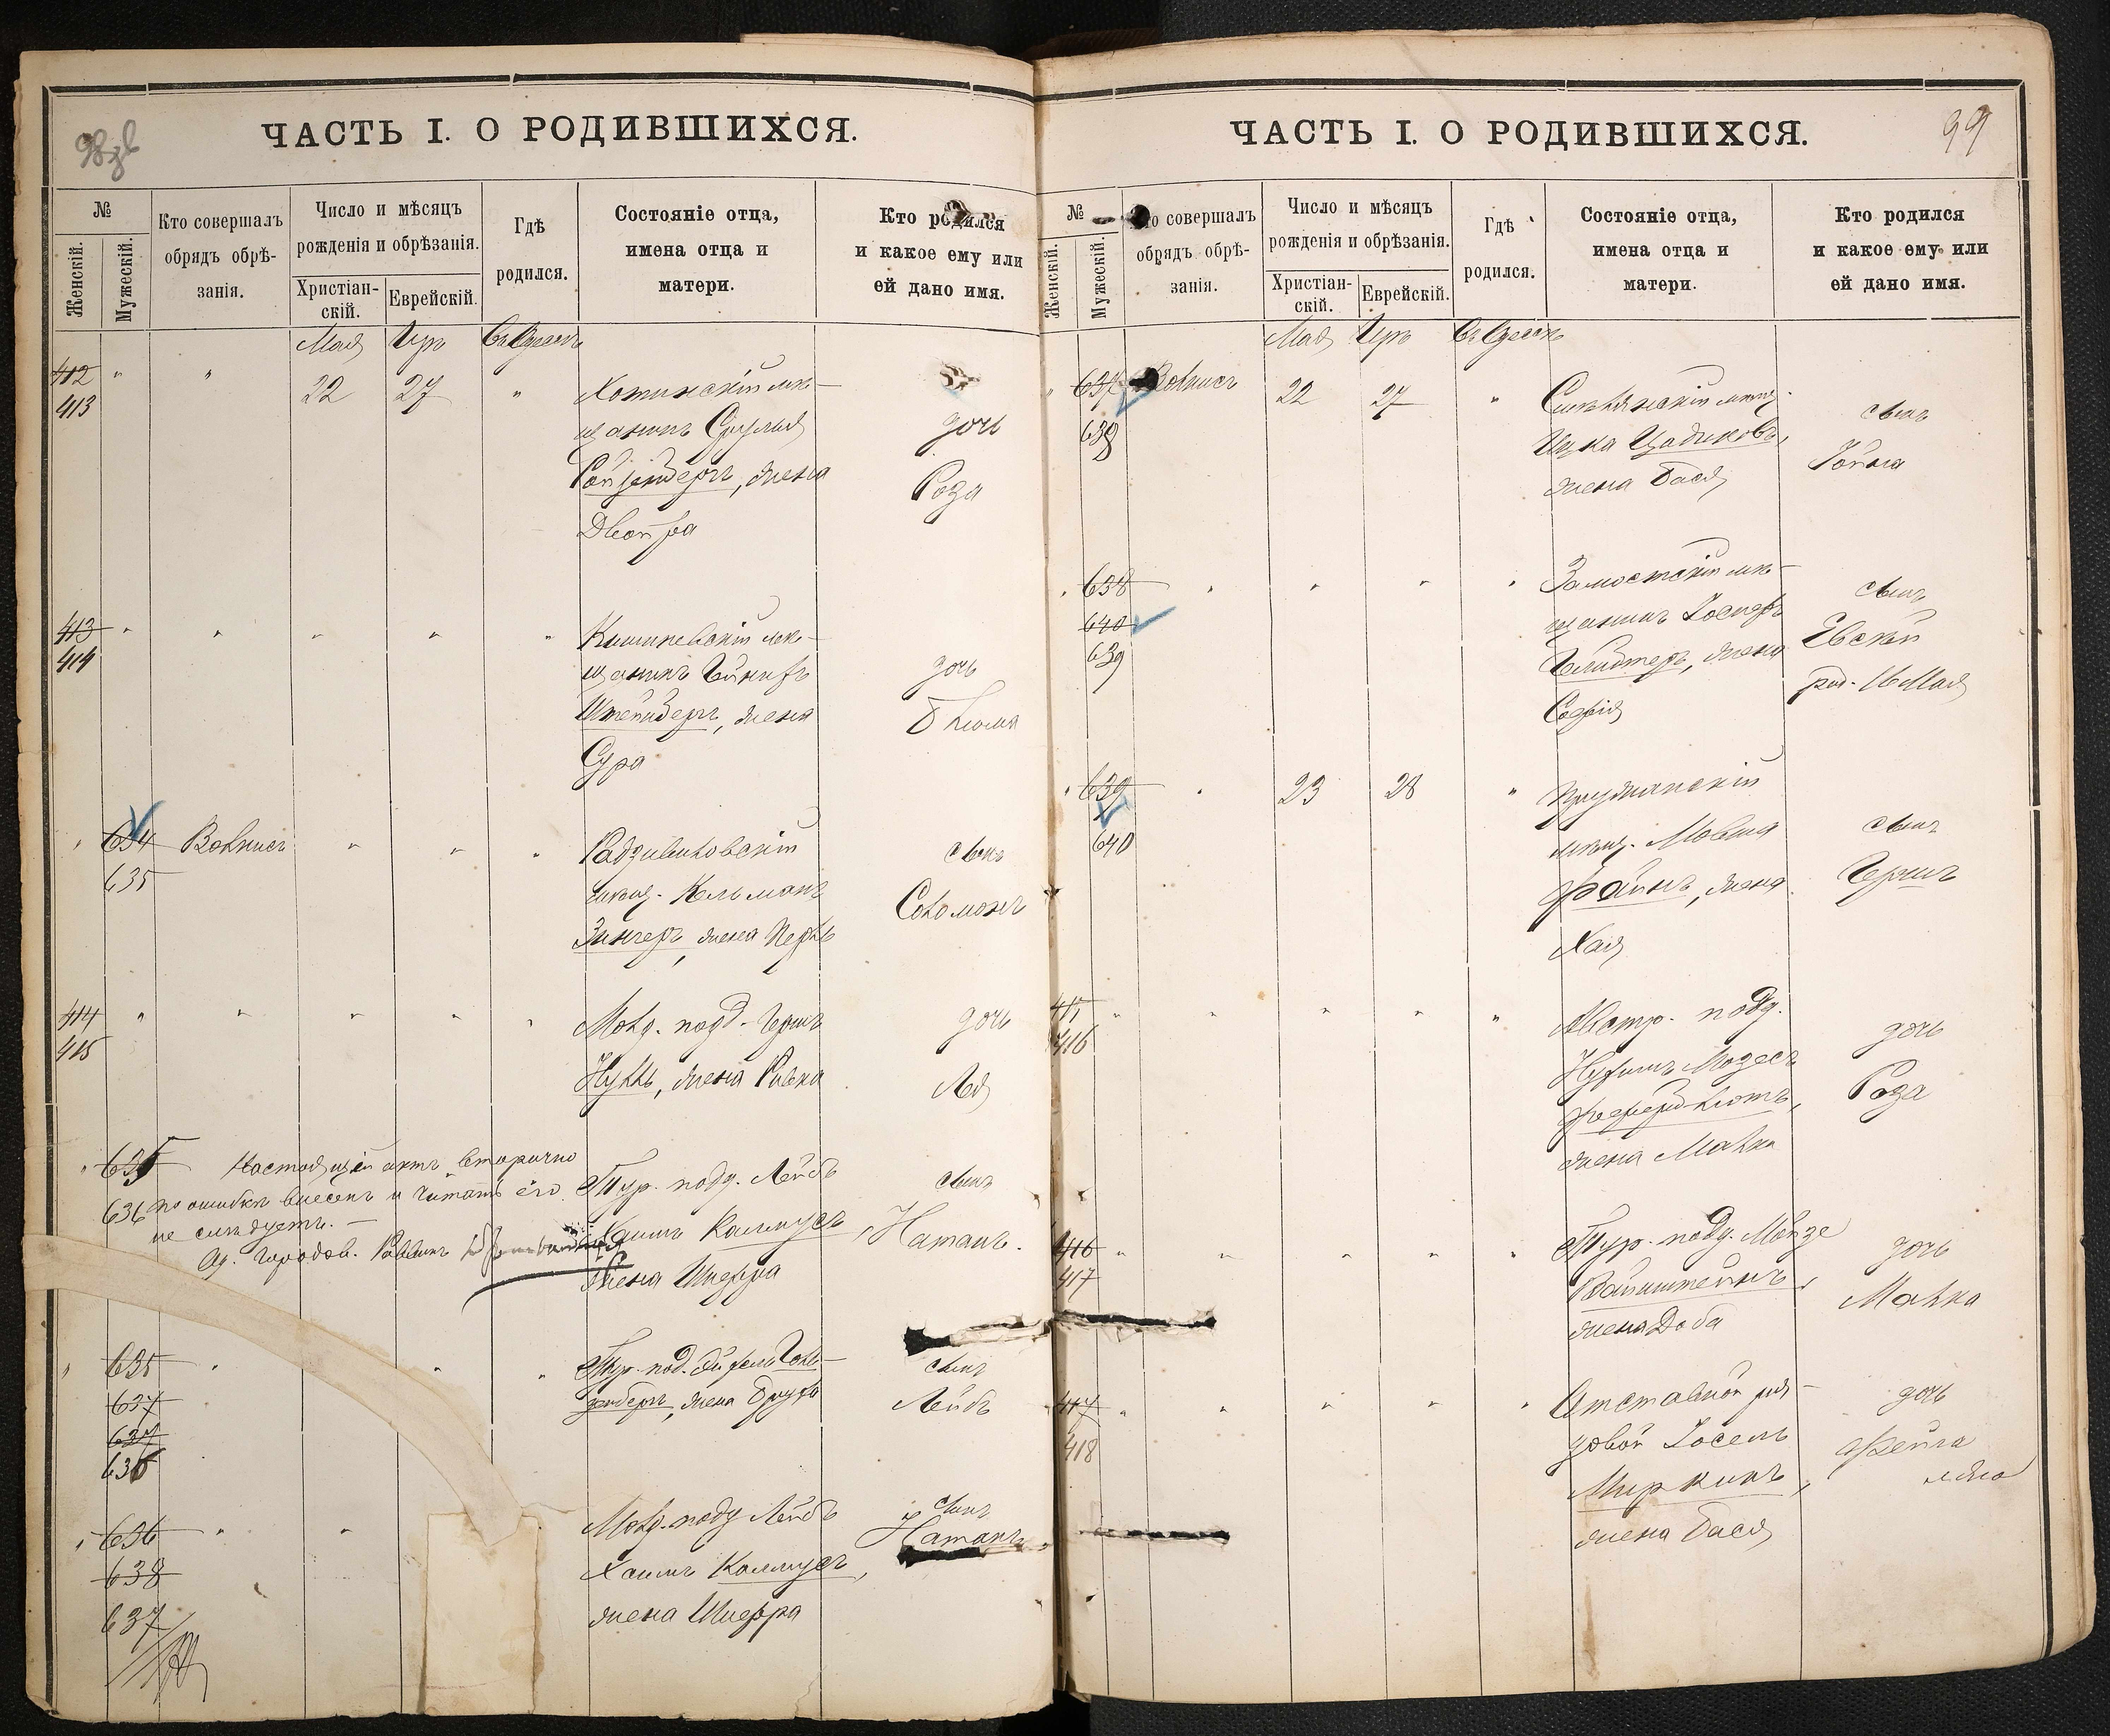 98 об
ЧАСТЬ I. О РОДИВШИХСЯ.
№
Женскій.
Мужескій.
Кто совершалъ
обрядъ обрѣ-
занія.
Число и мѣсяцъ
рожденія и обрѣзанія.
Христіан-
скій.
Еврейскій.
Гдѣ
родился.
Состояніе отца,
имена отца и
матери.
Кто родился
и какое ему или
ей дано имя.
Мая Іяръ Въ Одессѣ
412 " " 22 27 " Хотинскій мѣ-
413 щанинъ Сруль
Ройзенбергъ, жена
Двойра
дочь
Роза
413 " " " " " Кишиневскій мѣ-
414 щанинъ
Штейнбергъ, жена
Сура
дочь
Блюма
" 634 Вольнисъ " " " Радзивиловскій
635 мѣщ. Кельманъ
Зингеръ, жена Перль
сынъ
Соломонъ
414 " " " " " Молд. подд. Гершъ
415 Нулль, жена Ривка
дочь
Лея
" 635 Настоящій актъ вторично
636 по ошибкѣ внесенъ и читать его
не слѣдуетъ. —
Од. Городов. Раввинъ
Тур. подд. Лейбъ
Хаимъ Каллмусъ,
жена Шифра
сынъ
Натанъ.
" 635 " " " Тур. под. Голь-
637 денбергъ, жена Бруха
637
636
сынъ
Лейбъ
" 636 " " Молд. подд Лейбъ
638 Хаимъ Каллмусъ,
637 жена Шифра
сынъ
Натанъ
99
ЧАСТЬ I. О РОДИВШИХСЯ.
№
Женскій.
Мужескій.
Кто совершалъ
обрядъ обрѣ-
занія.
Число и мѣсяцъ
рожденія и обрѣзанія.
Христіан-
скій.
Еврейскій.
Гдѣ
родился.
Состояніе отца,
имена отца и
матери.
Кто родился
и какое ему или
ей дано имя.
Мая Іяръ Въ Одессѣ
" 637 Вольнисъ 22 27 " Смѣлянскій мѣщ.
638 Ицка Цадиковъ,
жена Бася
сынъ
Іойна
" 638 " " " " Замостскій мѣ-
640 щанинъ Іосифъ
639 жена
Софія
сынъ
Евсѣй
род. 16 Мая
" 639 " 23 28 " Пружанскій
640 мѣщ. Мовша
Файнъ, жена
Хая
сынъ
Гершъ
415 " " " " " Австр. подд.
416 Нухимъ Мозесъ
жена Малка
дочь
Роза
416 " " " " " Тур. подд. Мойзе
417 Вайнштейнъ,
жена Доба
дочь
Малка
417 " " " " " Отставной ря-
418 довой Іосель
Миркинъ,
жена Бася
дочь
Фейга